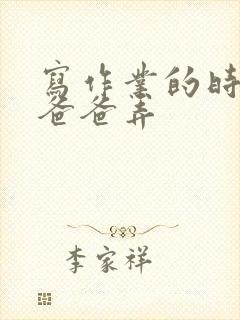 寫作業的時
爸爸弄
李家祥